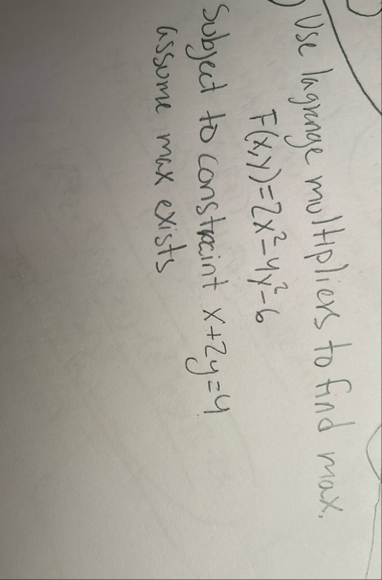 Use lagrange multipliers to find max.
F(x,y)=2x²-4y²-6
Subject to constraint x+2y=4
assume max exists